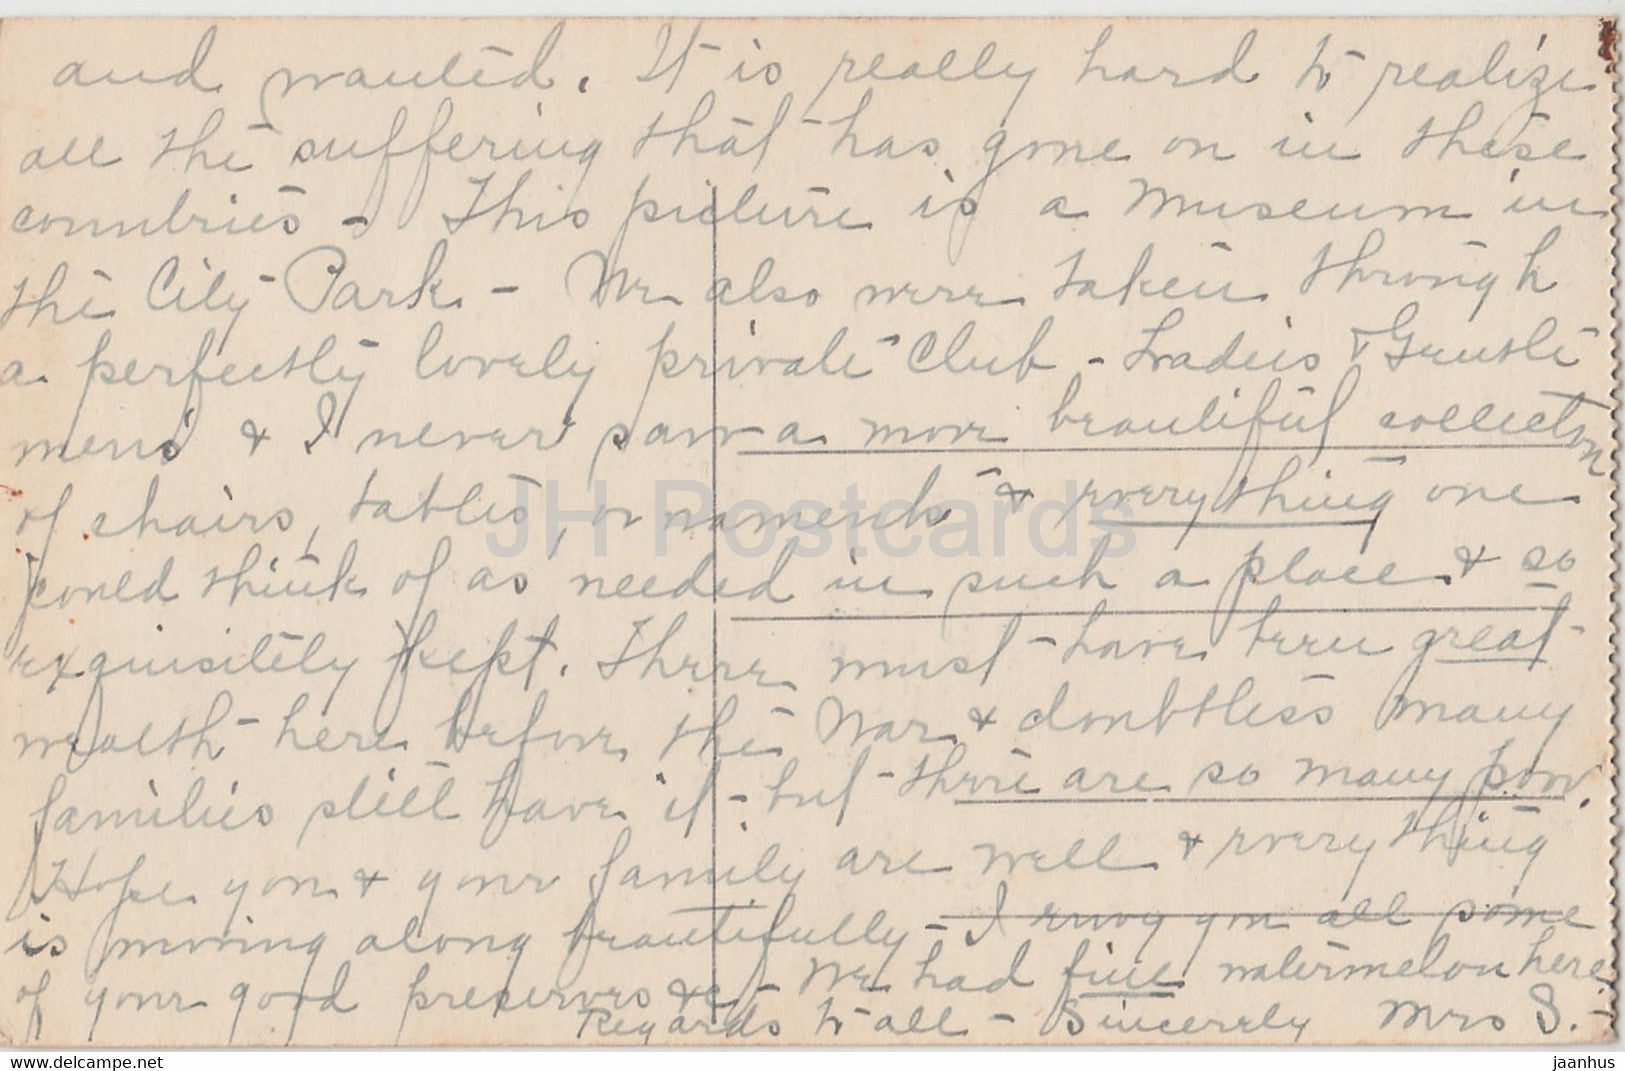 and wanted. It is really hard to realize
all the suffering that has gone on in these
countries - This picture is a Museum in
the City Park - We also were taken through
a perfectly lovely private Club - Ladies & Gentle
mens & I never saw a more beautiful collection
of chairs, tables, ornaments & everything one
could think of as needed in such a place & so
exquisitely kept. There must have been great
wealth here before the War & doubtless many
families still have it - but there are so many poor.
Hope you & your family are well & everything
is moving along beautifully - I envy you all some
of your good preserves &c - We had fine watermelon here.
Regards to all - Sincerely Mrs S. -
JH Postcards
www.delcampe.net
jaanhus